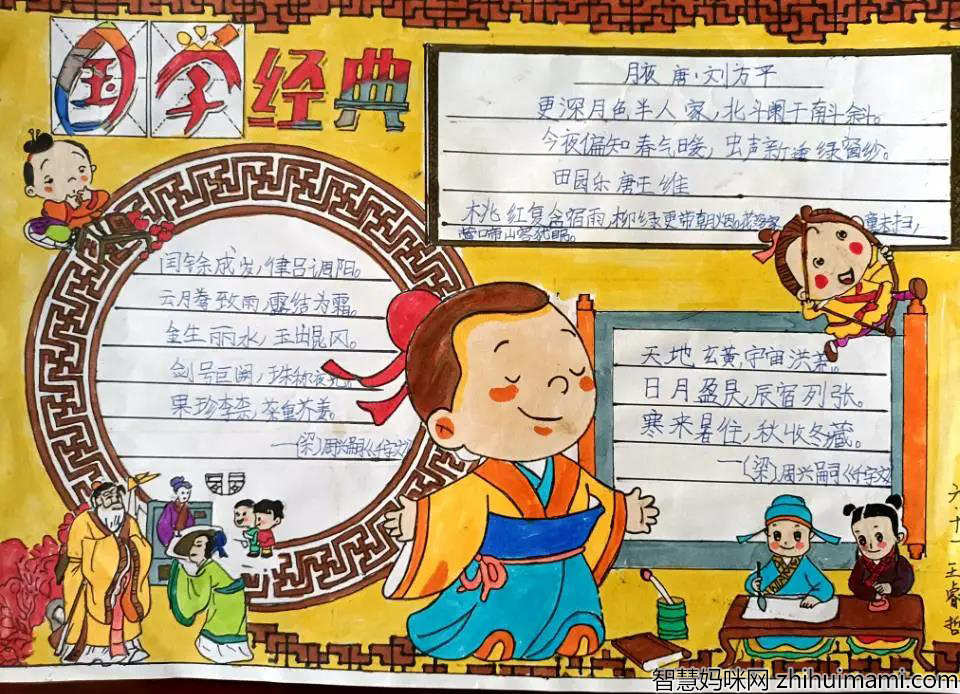 国学经典
月夜 唐·刘方平
更深月色半人家,北斗阑干南斗斜。
今夜偏知春气暖,虫声新透绿窗纱。
田园乐 唐王维
桃红复含宿雨,柳绿更带朝烟。花落家童未扫,
莺啼山客犹眠。
闰馀成岁,律吕调阳。
云腾致雨,露结为霜。
金生丽水,玉出昆冈。
剑号巨阙,珠称夜光。
果珍李柰,菜重芥姜。
——(梁)周兴嗣《千字文》
天地玄黄,宇宙洪荒。
日月盈昃,辰宿列张。
寒来暑往,秋收冬藏。
——(梁)周兴嗣《千字文》
六·十一
王睿哲
智慧妈咪网 zhihuimami.com